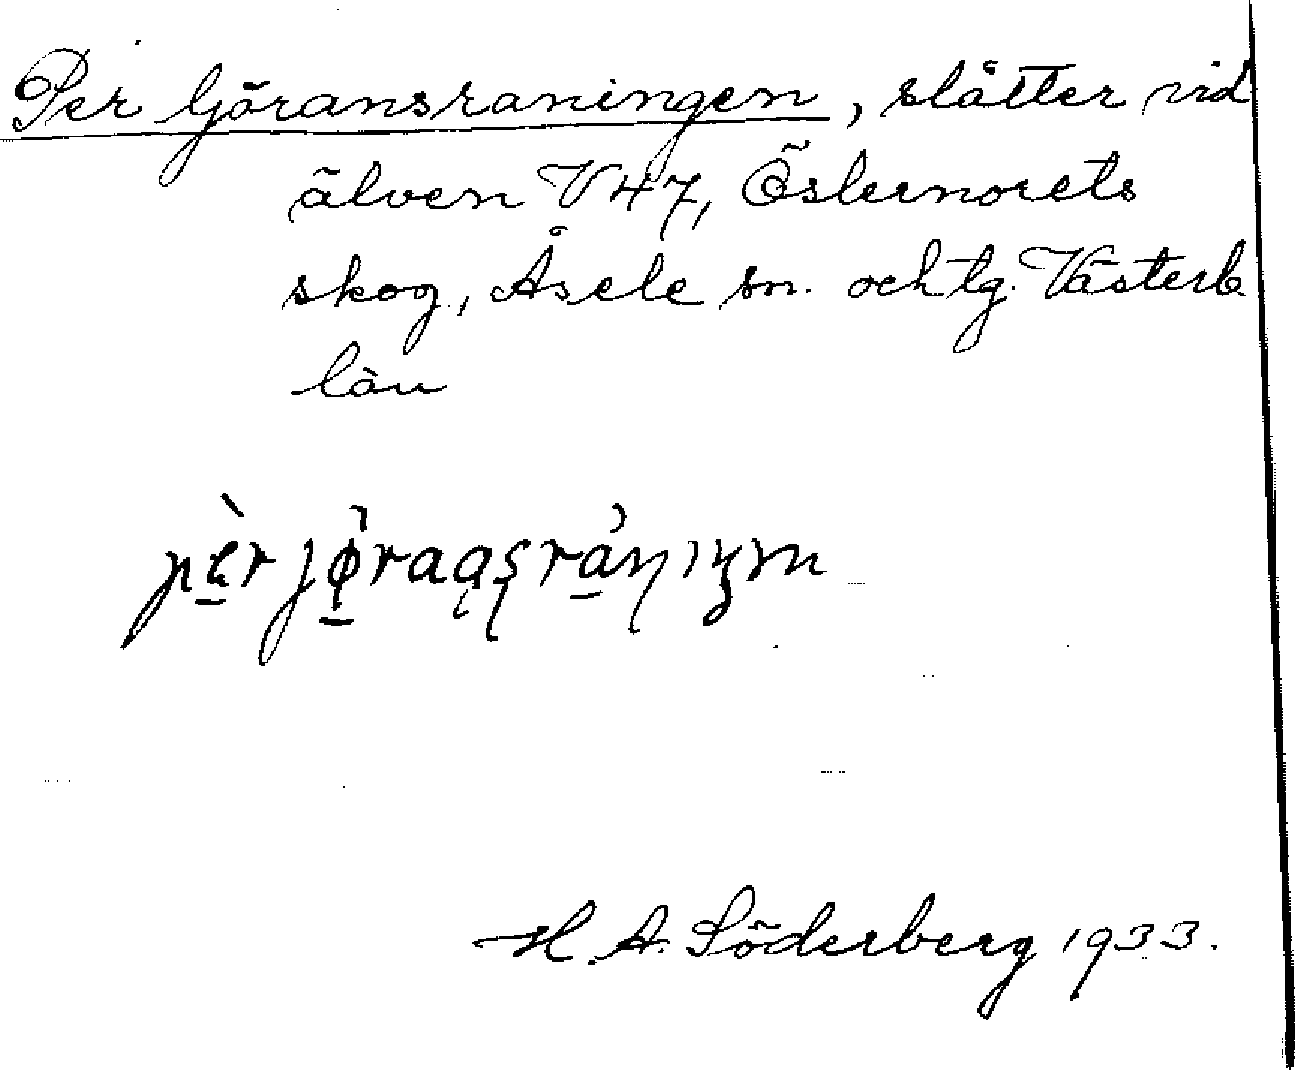 Per Göransraningen, slåtter vid
älven V 47, Östernorets
skog, Åsele sn. och tg. Västerb
län
pèr jø̀raɳʂránıŋm
H. A. Söderberg 1933.